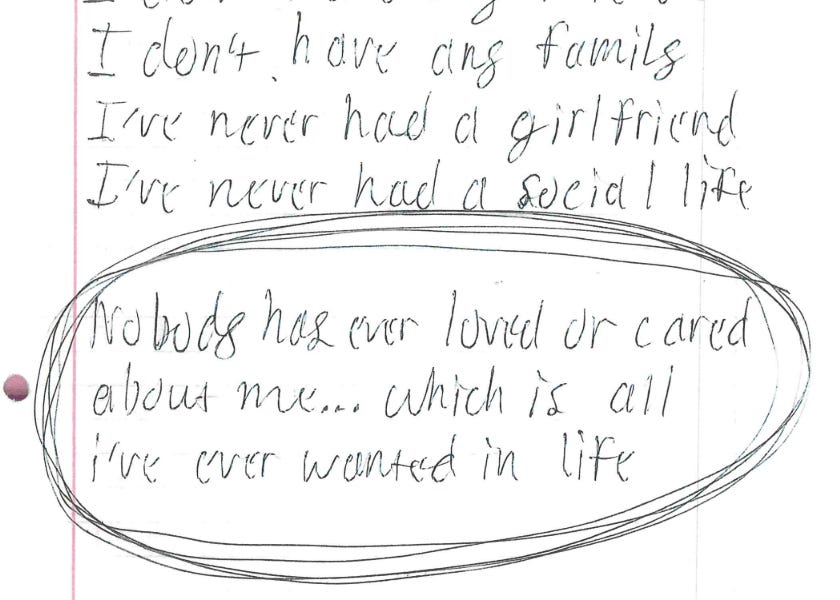 I don't have any family
I've never had a girlfriend
I've never had a social life
Nobody has ever loved or cared
about me... which is all
i've ever wanted in life